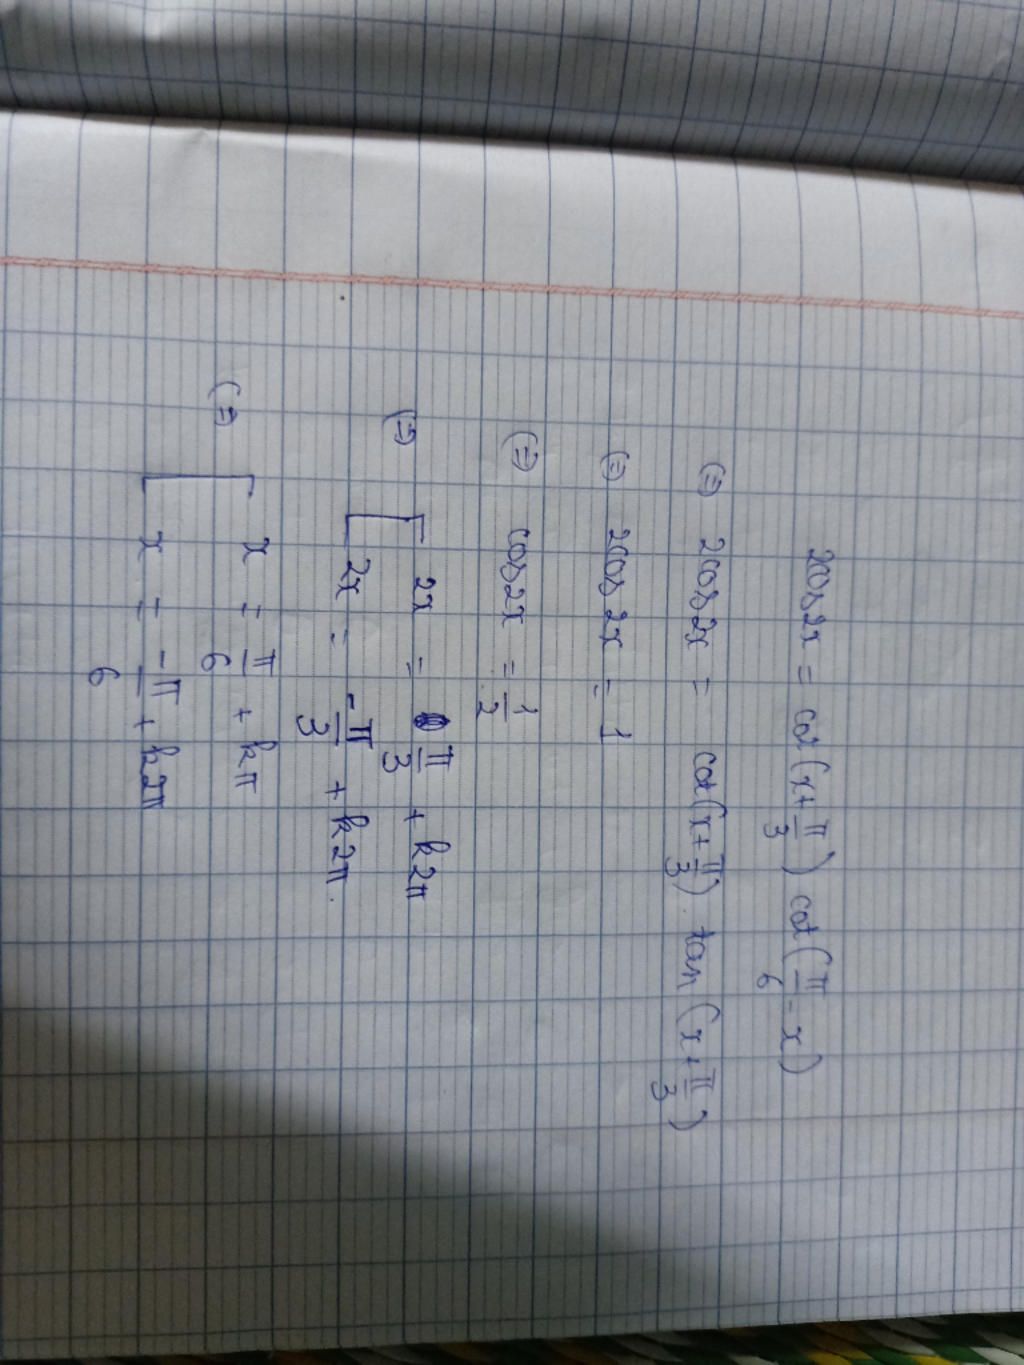 2cos2x = cot(x+π/3) cot(π/6 - x)
(=) 2cos2x = cot(x+π/3). tan(x+π/3)
(=) 2cos2x = 1
(=) cos2x = 1/2
(=) [ 2x = π/3 + k2π
2x = -π/3 + k2π.
(=) [ x = π/6 + kπ
x = -π/6 + k2π